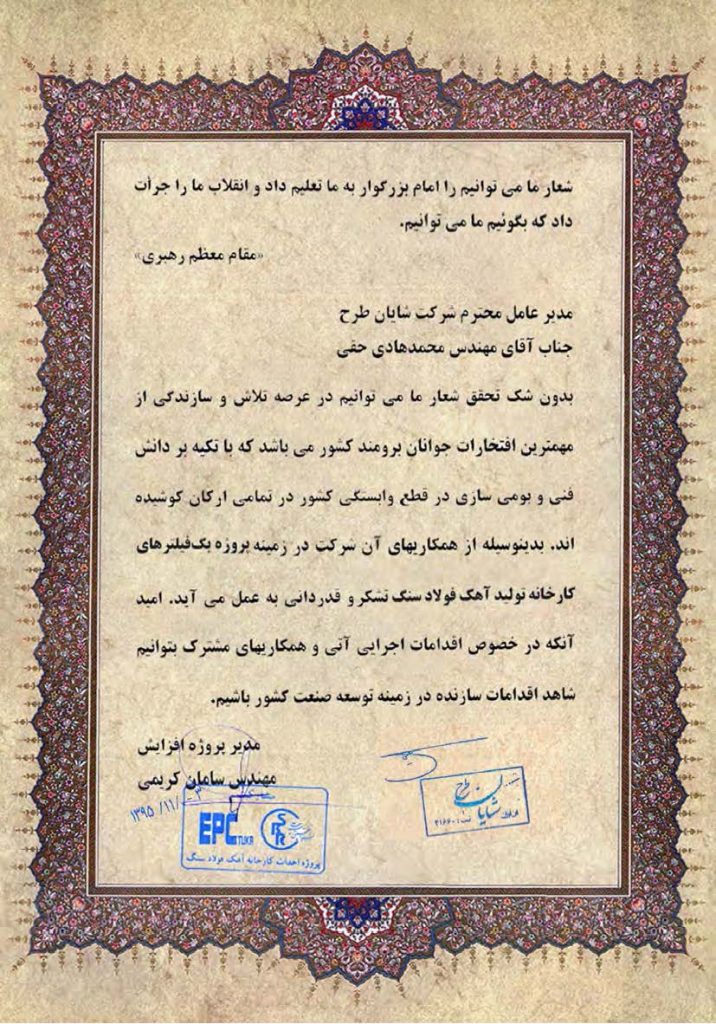 شعار ما می توانیم را امام بزرگوار به ما تعلیم داد و انقلاب ما را جرأت
داد که بگوئیم ما می توانیم.
«مقام معظم رهبری»
مدیر عامل محترم شرکت شایان طرح
جناب آقای مهندس محمدهادی حقی
بدون شک تحقق شعار ما می توانیم در عرصه تلاش و سازندگی از
مهمترین افتخارات جوانان برومند کشور می باشد که با تکیه بر دانش
فنی و بومی سازی در قطع وابستگی کشور در تمامی ارکان کوشیده
اند. بدینوسیله از همکاریهای آن شرکت در زمینه پروژه بگ‌فیلترهای
کارخانه تولید آهک فولاد سنگ تشکر و قدردانی به عمل می آید. امید
آنکه در خصوص اقدامات اجرایی آتی و همکاریهای مشترک بتوانیم
شاهد اقدامات سازنده در زمینه توسعه صنعت کشور باشیم.
مدیر پروژه افزایش
مهندس سامان کریمی
۱۳۹۵/۱۱/
EPC TUKA
پروژه احداث کارخانه آهک فولاد سنگ
شایان طرح